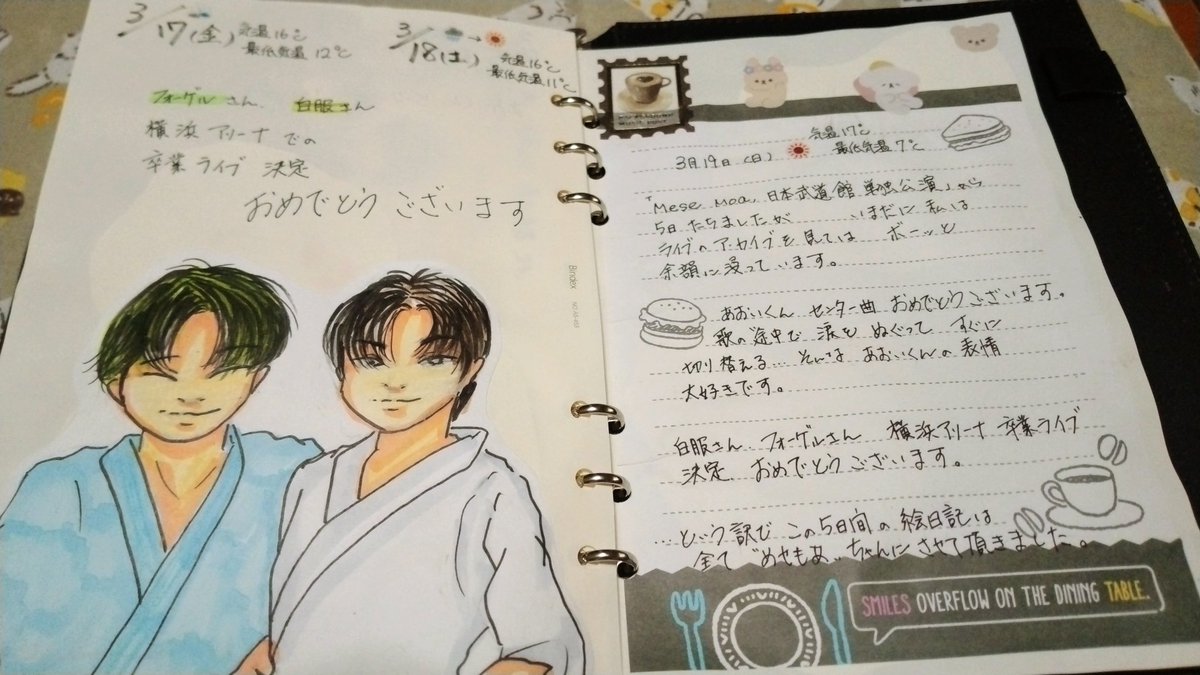 3/17(金) 気温16℃
最低気温 12℃
3/18(土) 気温16℃
最低気温11℃
フォーゲルさん、白服さん
横浜アリーナでの
卒業ライブ 決定
おめでとうございます
Bindex
3月19日(日) 気温17℃
最低気温7℃
「Mese Moa. 日本武道館 単独公演」から
5日たちましたが いまだに私は
ライブのアーカイブを見ては ボーッと
余韻に浸っています。
あおいくん センター曲 おめでとうございます。
歌の途中で 涙を ぬぐって すぐに
切り替える… そんな あおいくんの表情
大好きです。
白服さん フォーゲルさん 横浜アリーナ 卒業ライブ
決定 おめでとうございます。
…という訳で この5日間の絵日記は
全て"めせもあ."ちゃんにさせて頂きました。
SMILES OVERFLOW ON THE DINING TABLE.